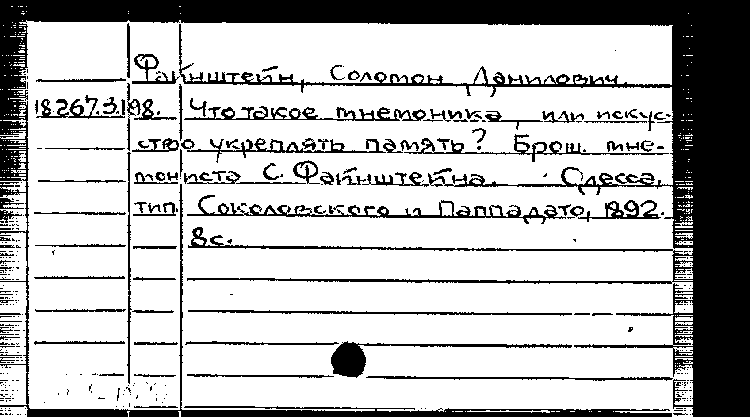 Файнштейн, Соломон Данилович.
18.267.3.198. Что такое мнемоника, или искус-
ство укреплять память? Брош. мне-
мониста С. Файнштейна. Одесса,
тип. Соколовского и Паппадато, 1892.
8с.